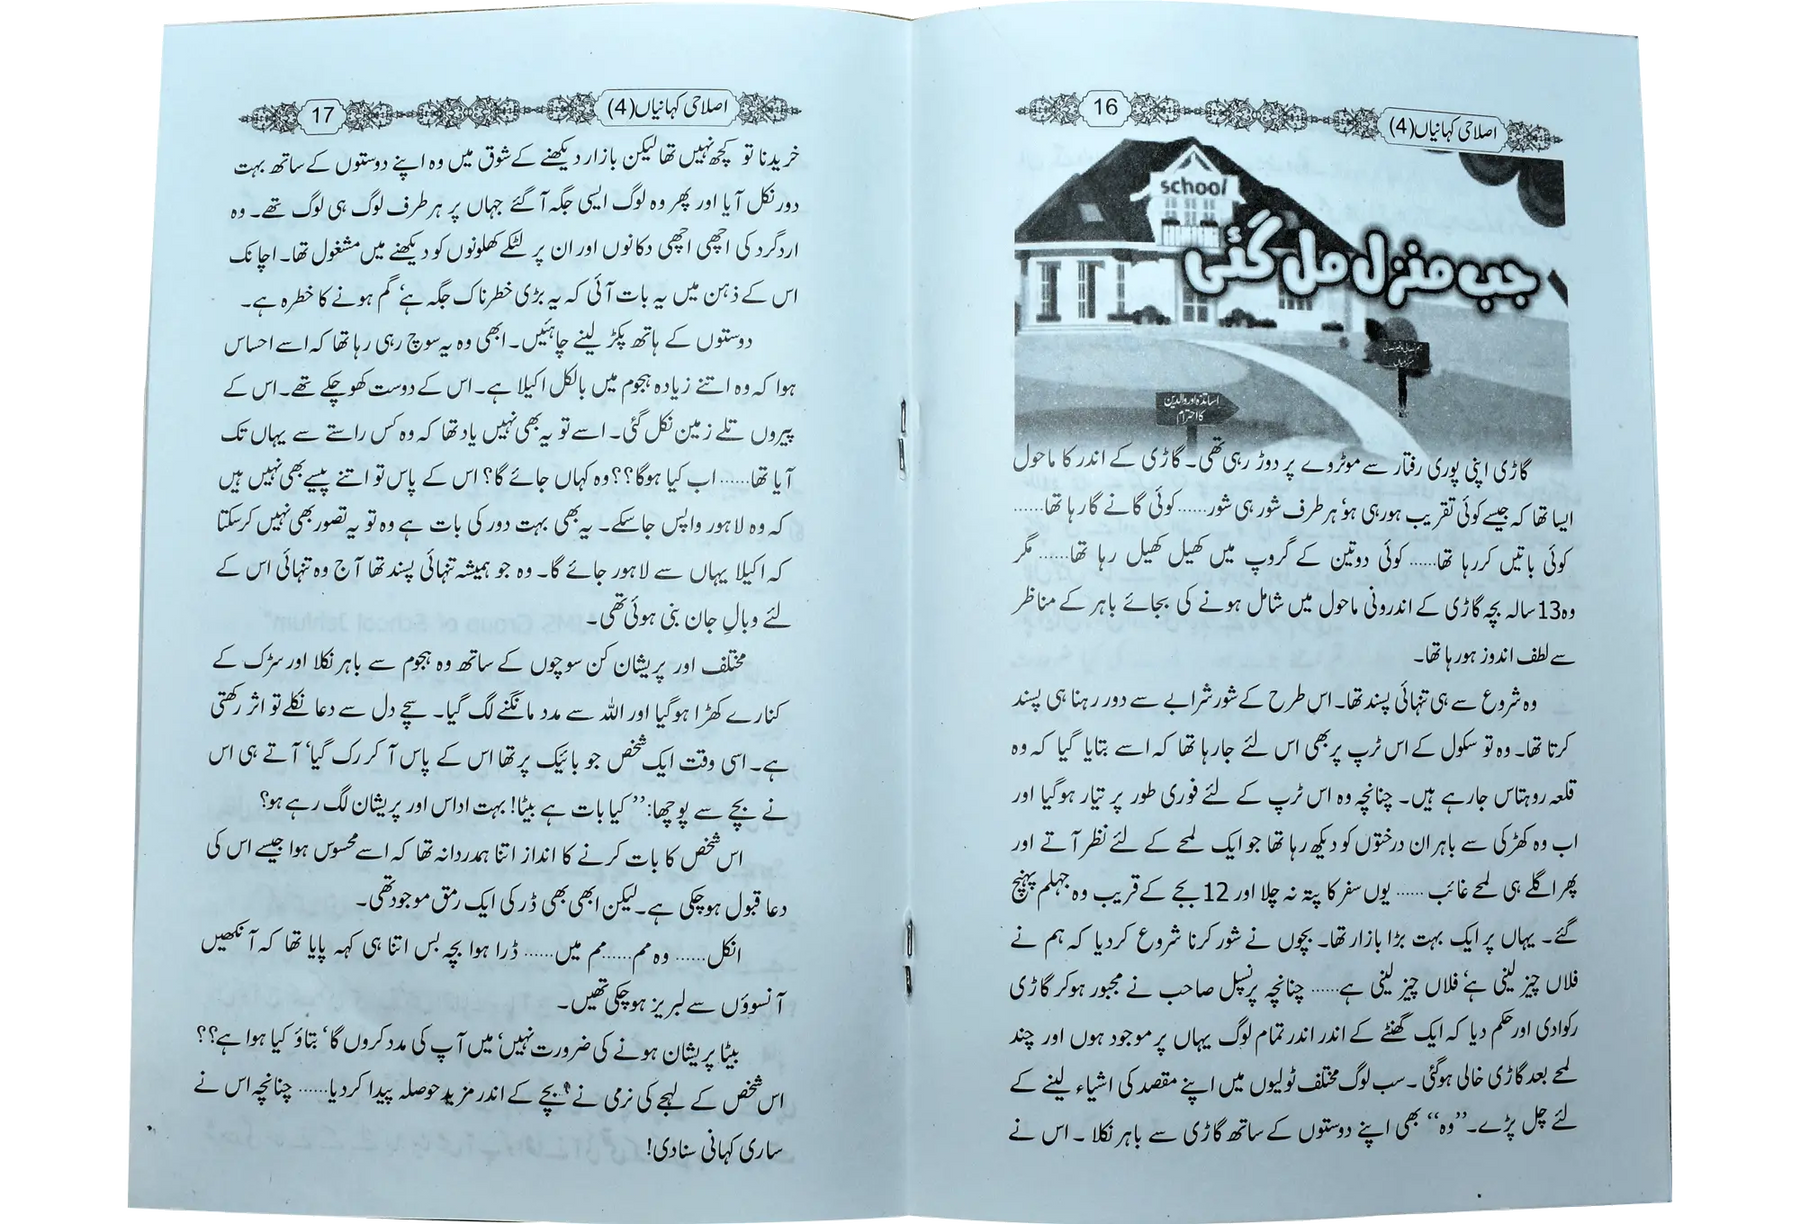 16
اصلاحی کہانیاں(4)
school
جب منزل مل گئی
اساتذہ اور والدین
کا احترام
گاڑی اپنی پوری رفتار سے موٹروے پر دوڑ رہی تھی۔ گاڑی کے اندر کا ماحول
ایسا تھا کہ جیسے کوئی تقریب ہورہی ہو‘ ہر طرف شور ہی شور...... کوئی گانے گارہا تھا......
کوئی باتیں کررہا تھا...... کوئی دوتین کے گروپ میں کھیل کھیل رہا تھا...... مگر
وہ 13 سالہ بچہ گاڑی کے اندرونی ماحول میں شامل ہونے کی بجائے باہر کے مناظر
سے لطف اندوز ہورہا تھا۔
وہ شروع سے ہی تنہائی پسند تھا۔ اس طرح کے شور شرابے سے دور رہنا ہی پسند
کرتا تھا۔ وہ تو سکول کے اس ٹرپ پر بھی اس لئے جارہا تھا کہ اسے بتایا گیا کہ وہ
قلعہ روہتاس جارہے ہیں۔ چنانچہ وہ اس ٹرپ کے لئے فوری طور پر تیار ہوگیا اور
اب وہ کھڑکی سے باہر ان درختوں کو دیکھ رہا تھا جو ایک لمحے کے لئے نظر آتے اور
پھر اگلے ہی لمحے غائب ...... یوں سفر کا پتہ نہ چلا اور 12 بجے کے قریب وہ جہلم پہنچ
گئے۔ یہاں پر ایک بہت بڑا بازار تھا۔ بچوں نے شور کرنا شروع کردیا کہ ہم نے
فلاں چیز لینی ہے‘ فلاں چیز لینی ہے...... چنانچہ پرنسپل صاحب نے مجبور ہوکر گاڑی
رکوادی اور حکم دیا کہ ایک گھنٹے کے اندر اندر تمام لوگ یہاں پر موجود ہوں اور چند
لمحے بعد گاڑی خالی ہوگئی۔ سب لوگ مختلف ٹولیوں میں اپنے مقصد کی اشیاء لینے کے
لئے چل پڑے۔ ’’وہ‘‘ بھی اپنے دوستوں کے ساتھ گاڑی سے باہر نکلا ۔ اس نے
17
اصلاحی کہانیاں(4)
خریدنا تو کچھ نہیں تھا لیکن بازار دیکھنے کے شوق میں وہ اپنے دوستوں کے ساتھ بہت
دور نکل آیا اور پھر وہ لوگ ایسی جگہ آگئے جہاں پر ہر طرف لوگ ہی لوگ تھے۔ وہ
اردگرد کی اچھی اچھی دکانوں اور ان پر لٹکے کھلونوں کو دیکھنے میں مشغول تھا۔ اچانک
اس کے ذہن میں یہ بات آئی کہ یہ بڑی خطرناک جگہ ہے‘ گم ہونے کا خطرہ ہے۔
دوستوں کے ہاتھ پکڑ لینے چاہئیں۔ ابھی وہ یہ سوچ رہی رہا تھا کہ اسے احساس
ہوا کہ وہ اتنے زیادہ ہجوم میں بالکل اکیلا ہے۔ اس کے دوست کھو چکے تھے۔ اس کے
پیروں تلے زمین نکل گئی۔ اسے تو یہ بھی نہیں یاد تھا کہ وہ کس راستے سے یہاں تک
آیا تھا...... اب کیا ہوگا؟؟ وہ کہاں جائے گا؟ اس کے پاس تو اتنے پیسے بھی نہیں ہیں
کہ وہ لاہور واپس جاسکے۔ یہ بھی بہت دور کی بات ہے وہ تو یہ تصور بھی نہیں کرسکتا
کہ اکیلا یہاں سے لاہور جائے گا۔ وہ جو ہمیشہ تنہائی پسند تھا آج وہ تنہائی اس کے
لئے وبالِ جان بنی ہوئی تھی۔
مختلف اور پریشان کن سوچوں کے ساتھ وہ ہجوم سے باہر نکلا اور سڑک کے
کنارے کھڑا ہوگیا اور اللہ سے مدد مانگنے لگ گیا۔ سچے دل سے دعا نکلے تو اثر رکھتی
ہے۔ اسی وقت ایک شخص جو بائیک پر تھا اس کے پاس آ کر رک گیا‘ آتے ہی اس
نے بچے سے پوچھا: ’’کیا بات ہے بیٹا! بہت اداس اور پریشان لگ رہے ہو؟
اس شخص کا بات کرنے کا انداز اتنا ہمدردانہ تھا کہ اسے محسوس ہوا جیسے اس کی
دعا قبول ہوچکی ہے۔ لیکن ابھی بھی ڈر کی ایک رمق موجود تھی۔
انکل...... وہ مم......مم میں...... ڈرا ہوا بچہ بس اتنا ہی کہہ پایا تھا کہ آنکھیں
آنسوؤں سے لبریز ہوچکی تھیں۔
بیٹا پریشان ہونے کی ضرورت نہیں‘ میں آپ کی مدد کروں گا‘ بتاؤ کیا ہوا ہے؟؟
اس شخص کے لہجے کی نرمی نے بچے کے اندر مزید حوصلہ پیدا کردیا...... چنانچہ اس نے
ساری کہانی سنادی!